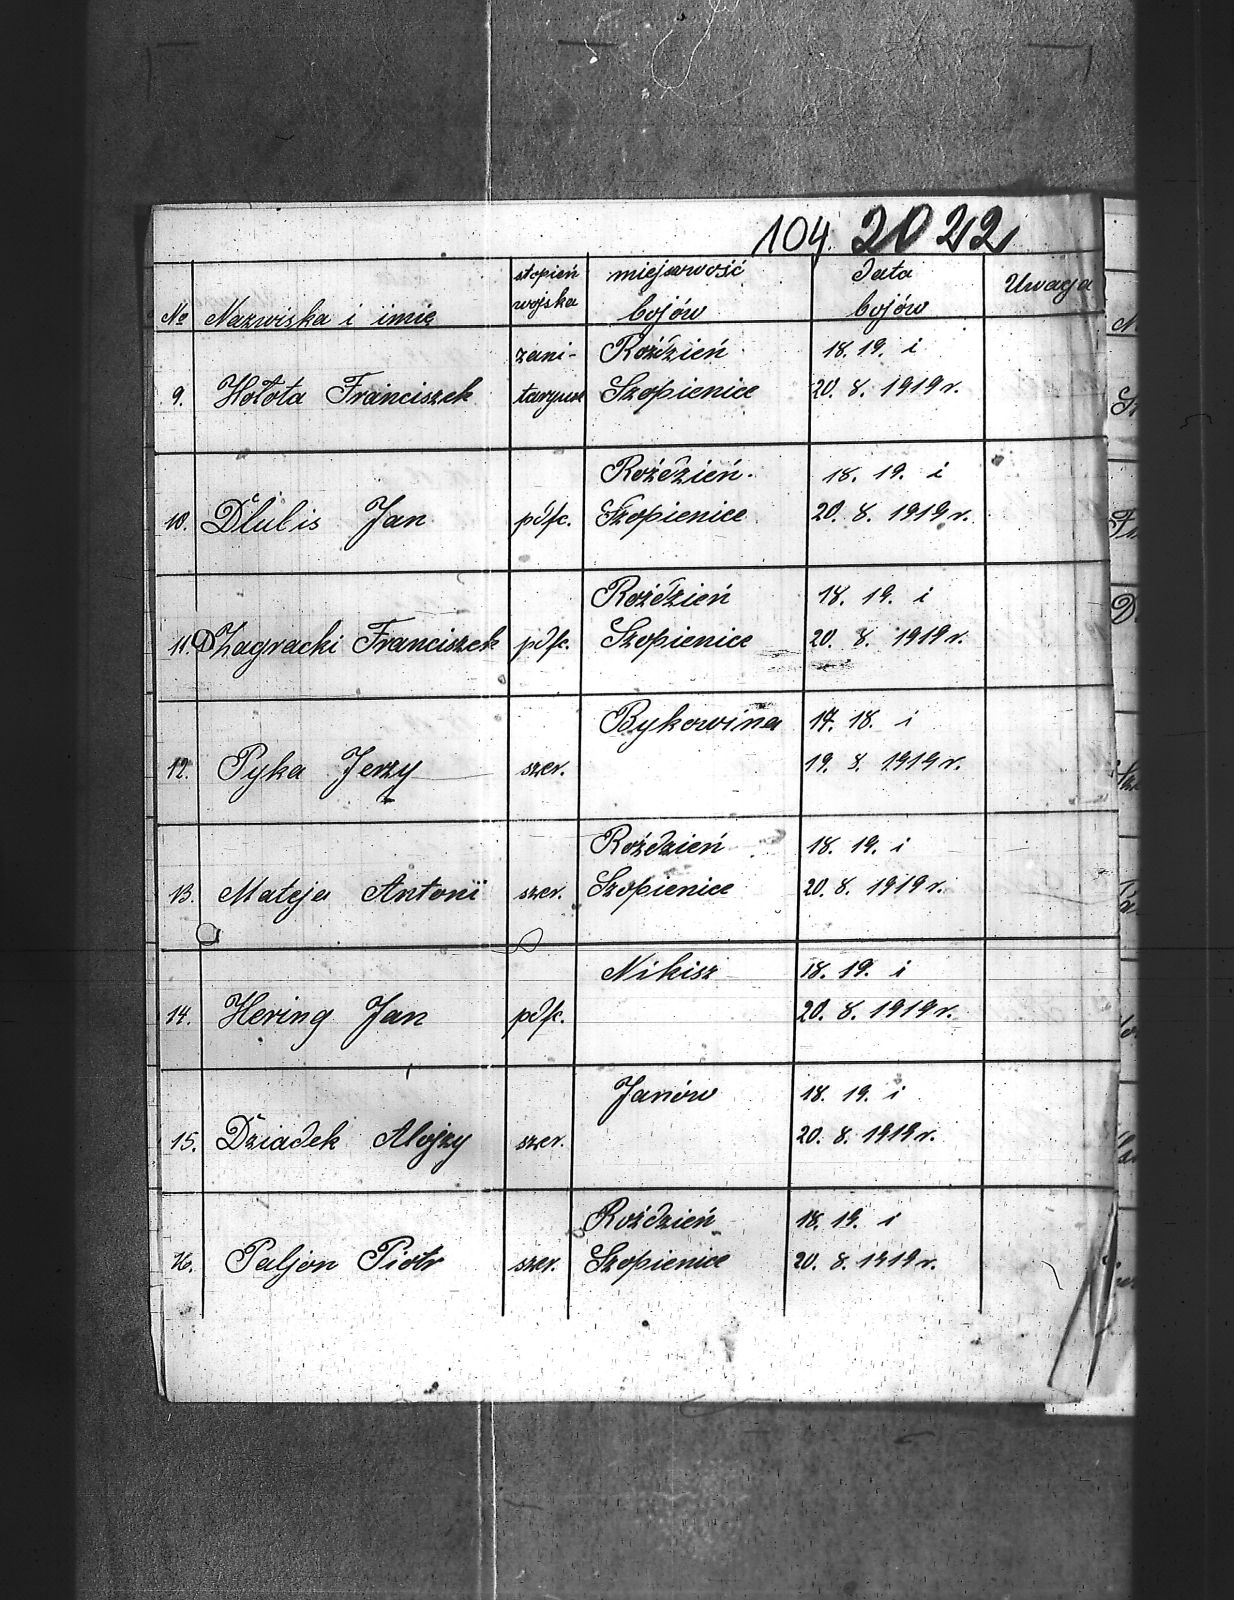 104. 2022
№ Nazwiska i imię stopień wojska miejscowość bojów Data bojów Uwaga
zani- Roździeń 18. 19. i
9. Hołota Franciszek taryusz Szopienice 20. 8. 1919 r.
Roździeń 18. 19. i
10. Dlubis Jan pdfc. Szopienice 20. 8. 1919 r.
Roździeń 18. 19. i
11. Zagracki Franciszek pdfc. Szopienice 20. 8. 1919 r.
Bykowina 17. 18. i
12. Pyka Jerzy szer. 19. 8. 1919 r.
Roździeń 18. 19. i
13. Mateja Antoni szer. Szopienice 20. 8. 1919 r.
Nikisz 18. 19. i
14. Hering Jan pdfc. 20. 8. 1919 r.
Janów 18. 19. i
15. Dziadek Alojzy szer. 20. 8. 1919 r.
Roździeń 18. 19. i
16. Paljon Piotr szer. Szopienice 20. 8. 1919 r.